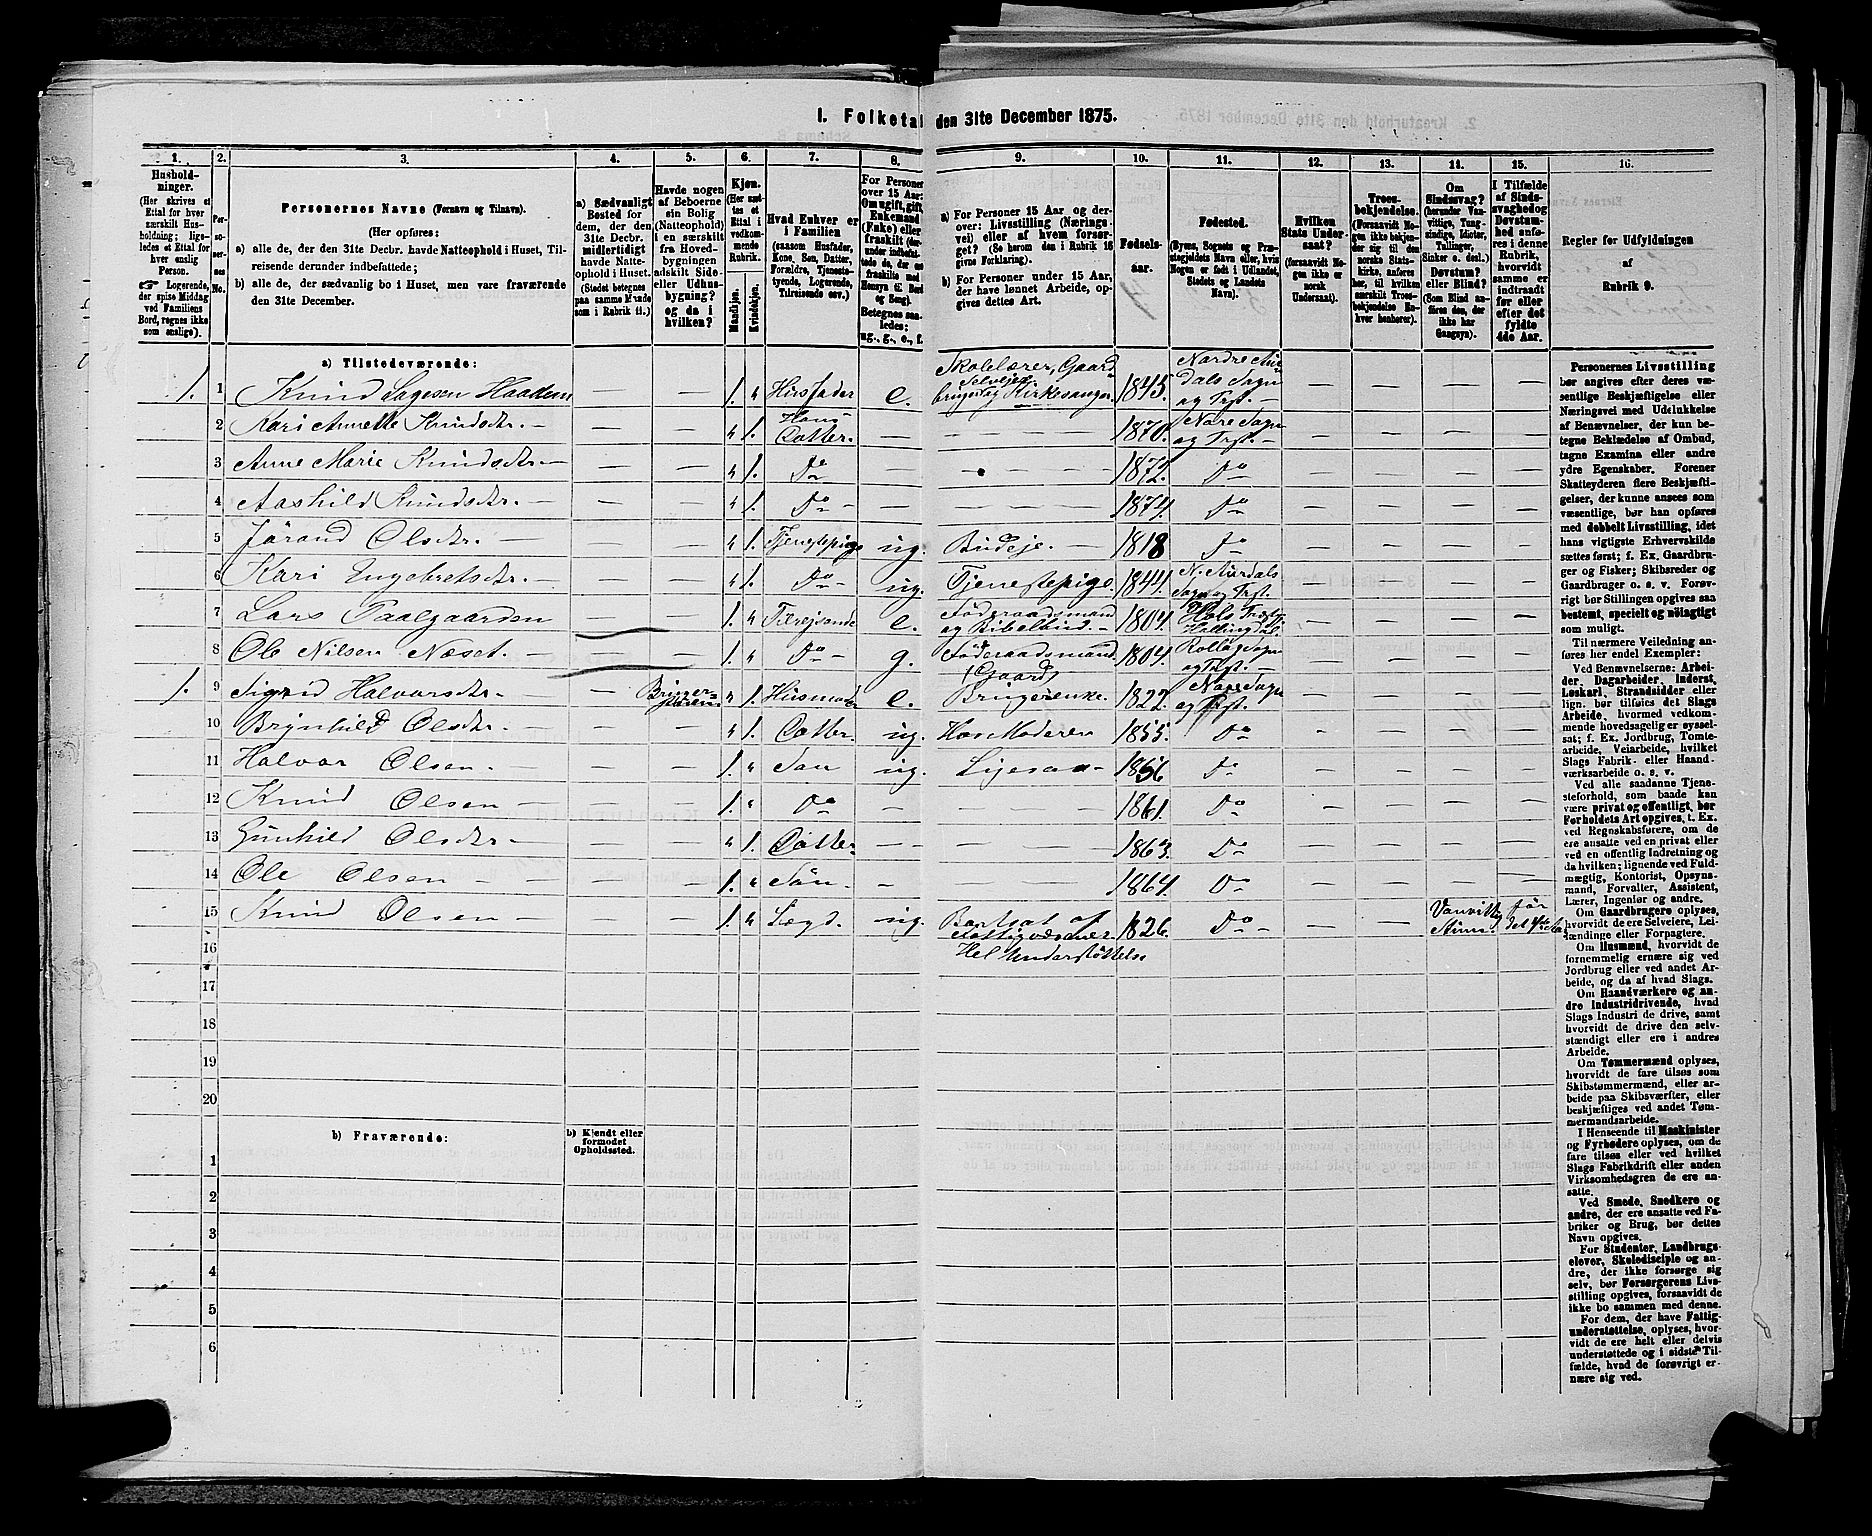 1. Folketal den 31te December 1875.
1. 2. 3. 4. 5. 6. 7. 8. 9. 10. 11. 12. 13. 14. 15. 16.
Husholdninger.
(Her skrives et
Ettal for hver
særskilt Husholdning;
ligeledes et Ettal for
hver enslig
Person.
Logerende,
der spise Middag
ved Familiens
Bord, regnes ikke
som enslige).
Personernes No.
Personernes Navne (Fornavn og Tilnavn).
(Her opføres:
a) alle de, der den 31te Decbr. havde Natteophold i Huset, Tilreisende derunder indbefattede;
b) alle de, der sædvanlig bo i Huset, men vare fraværende
den 31te December.
a) Sædvanligt
Bosted for
dem, der den
31te Decbr.
midlertidigt
havde Natteophold i Huset.
(Stedet betegnes
paa samme Maade
som i Rubrik 11.)
Havde nogen
af Beboerne
sin Bolig
(Natteophold)
i en særskilt
fra Hovedbygningen
adskilt Side-
eller Udhusbygning?
og da i
hvilken?
Kjøn.
(Her sættes et
Ettal i
vedkommende
Rubrik.
Mandkjøn.
Kvindekjøn.
Hvad Enhver er
i Familien
(saasom Husfader,
Kone, Søn, Datter,
Forældre, Tjenestetyende, Logerende,
Tilreisende osv.)
For Personer
over 15 Aar:
Om ugift, gift,
Enkemand
(Enke) eller
fraskilt
Betegnes saaledes:
ug., g., e., f.
a) For Personer 15 Aar og derover: Livsstilling (Næringsvei) eller af hvem forsørget? (Se herom den i Rubrik 16
givne Forklaring).
b) For Personer under 15 Aar,
der have lønnet Arbeide, opgives dettes Art.
Fødselsaar.
Fødested.
(Byens, Sognets og Præstegjeldets Navn eller, hvis
Nogen er født i Udlandet,
Stedets og Landets
Navn).
Hvilken
Stats Undersaat?
(forsaavidt Nogen ikke er
norsk
Undersaat).
Troesbekjendelse.
(Forsaavidt Nogen ikke bekjender sig til den
norske Statskirke, anføres
her, til hvilken
særskilt Troesbekjendelse Enhver henhører).
Om
Sindssvag?
(herunder Vanvittige, Tungsindige, Idioter,
Tullinger,
Sinker o. desl.)
Døvstum?
eller Blind?
(Som Blind anføres den, der
ikke har
Gangsyn).
I Tilfælde
af Sindssvaghed og
Døvstumhed anføres i denne
Rubrik,
hvorvidt
samme er
indtraadt
før eller
efter det
fyldte
4de Aar.
Regler for Udfyldningen
af
Rubrik 9.
a) Tilstedeværende:
1. 1 Knud Haadem — — 1. " Husfader e. Skolelærer, Gaardbruger Selveier og Kirkesanger 1845. Nordre Aurdals Sogn og Prst. — — — — —
2 Kari Annette Knudsdtr. — — " 1. Huus Datter. — — — 1870. Nore Sogn og Prst. — — — — —
3 Anne Marie Knudsdtr — — — " 1. Do — — — 1872. Do — — — —
4 Aashild Knudsdtr. — — — " 1. Do — — — — 1874. Do — — — —
5 Jørand Olsdtr. — — — " 1. Tjenestepige ug. Budeje. — 1818 Do — — — —
6 Kari Engebretsdtr. — — " 1. Do — ug. Tjenestepige. 1844. N. Aurdals Sogn og Prst. — — — —
7 Lars Paalgaarden — — 1. " Tilrejsende e. Føderaadsmand og 1804. Hols Hallingdal — — — —
8 Ole Nilsen Næset. — — 1. " Do — g. Føderaadsmand (Gaard) 1804. Rollag Sogn og Prst. — — — — —
1. 9 Sigrid Halvorsdtr. — " 1. Husmoder e. 1822. Nore Sogn og Prst. — — — —
10 Brynhild Olsdtr. — — — " 1. Datter. ug. Hos Moderen 1855. Do — — — —
11 Halvor Olsen. — — 1. " Søn ug. Ligesaa — 1856 Do — — — —
12 Knud Olsen — — — 1. " Do — — — 1861. Do — — — —
13 Gunhild Olsdtr. — — — " 1. Datter — — — — 1863. Do — — — —
14 Ole Olsen — — — 1. " Søn — — — — 1864. Do — — — —
15 Knud Olsen — — — 1. " Lægd. ug. Bortsat af Fattigvæsenet. 1826. Do — — Vanvittig før det 4de Aar
Hel Understøttelse
16
17
18
19
20
b) Fraværende:
b) Kjendt eller
formodet
Opholdssted.
1
2
3
4
5
6
Personernes Livsstilling
bør angives efter deres væsentlige Beskjæftigelse eller
Næringsvei med Udelukkelse
af Benævnelser, der kun betegne Beklædelse af Ombud,
tagne Examina eller andre
ydre Egenskaber. Forener
Skatteyderen flere Beskjæftigelser, der kunne ansees som
væsentlige, bør han opføres
med dobbelt Livsstilling, idet
hans vigtigste Erhvervskilde
sættes først; f. Ex. Gaardbruger og Fisker; Skibsreder og
Gaardbruger o. s. v. Forøvrigt bør Stillingen opgives saa
bestemt, specielt og nøiagtigt
som muligt.
Til nærmere Veiledning anføres her endel Exempler:
Ved Benævnelserne: Arbeider, Dagarbeider, Inderst,
Løskarl, Strandsidder eller
lign. bør tilføies det Slags
Arbeide, hvormed vedkommende hovedsagelig er sysselsat; f. Ex. Jordbrug, Tomtearbeide, Veiarbeide, hvilket
Slags Fabrik- eller Haandværksarbeide o. s. v.
Ved alle saadanne Tjenesteforhold, som baade kan
være privat og offentligt, bør
Forholdets Art opgives, t. Ex.
ved Regnskabsførere, om de
ere ansatte ved en privat eller
ved en offentlig Indretning og
da hvilken; lignende ved Fuldmægtig, Kontorist, Opsynsmand, Forvalter, Assistent,
Lærer, Ingeniør og andre.
Om Gaardbrugere oplyses,
hvorvidt de ere Selveiere, Leilændinge eller Forpagtere.
Om Husmænd, hvorvidt de
fornemmelig ernære sig ved
Jordbrug eller ved andet Arbeide, og da af hvad Slags.
Om Haandværkere og andre Industridrivende, hvad
Slags Industri de drive, samt
hvorvidt de drive den selvstændigt eller ere i andres
Arbeide.
Om Tømmermænd oplyses,
hvorvidt de fare tilsøs som
Skibstømmermænd, eller arbeide paa Skibsværfter, eller
beskjæftiges ved andet Tømmermandsarbeide.
I Henseende til Maskinister
og Fyrbødere oplyses, om de
fare tilsøs eller ved hvilket
Slags Fabrikdrift eller anden
Virksomhedsgren de ere ansatte.
Ved Smede, Snedkere og
andre, der ere ansatte ved Fabriker og Brug, bør dettes
Navn opgives.
For Studenter, Landbrugselever, Skoledisciple og andre, der ikke forsørge sig
selv, bør Forsørgerens Livsstilling opgives, forsaavidt de
ikke bo sammen med denne.
For dem, der have Fattigunderstøttelse, oplyses, hvorvidt de ere helt eller delvis
understøttede og i sidste Tilfælde, hvad de forøvrigt ernære sig ved.